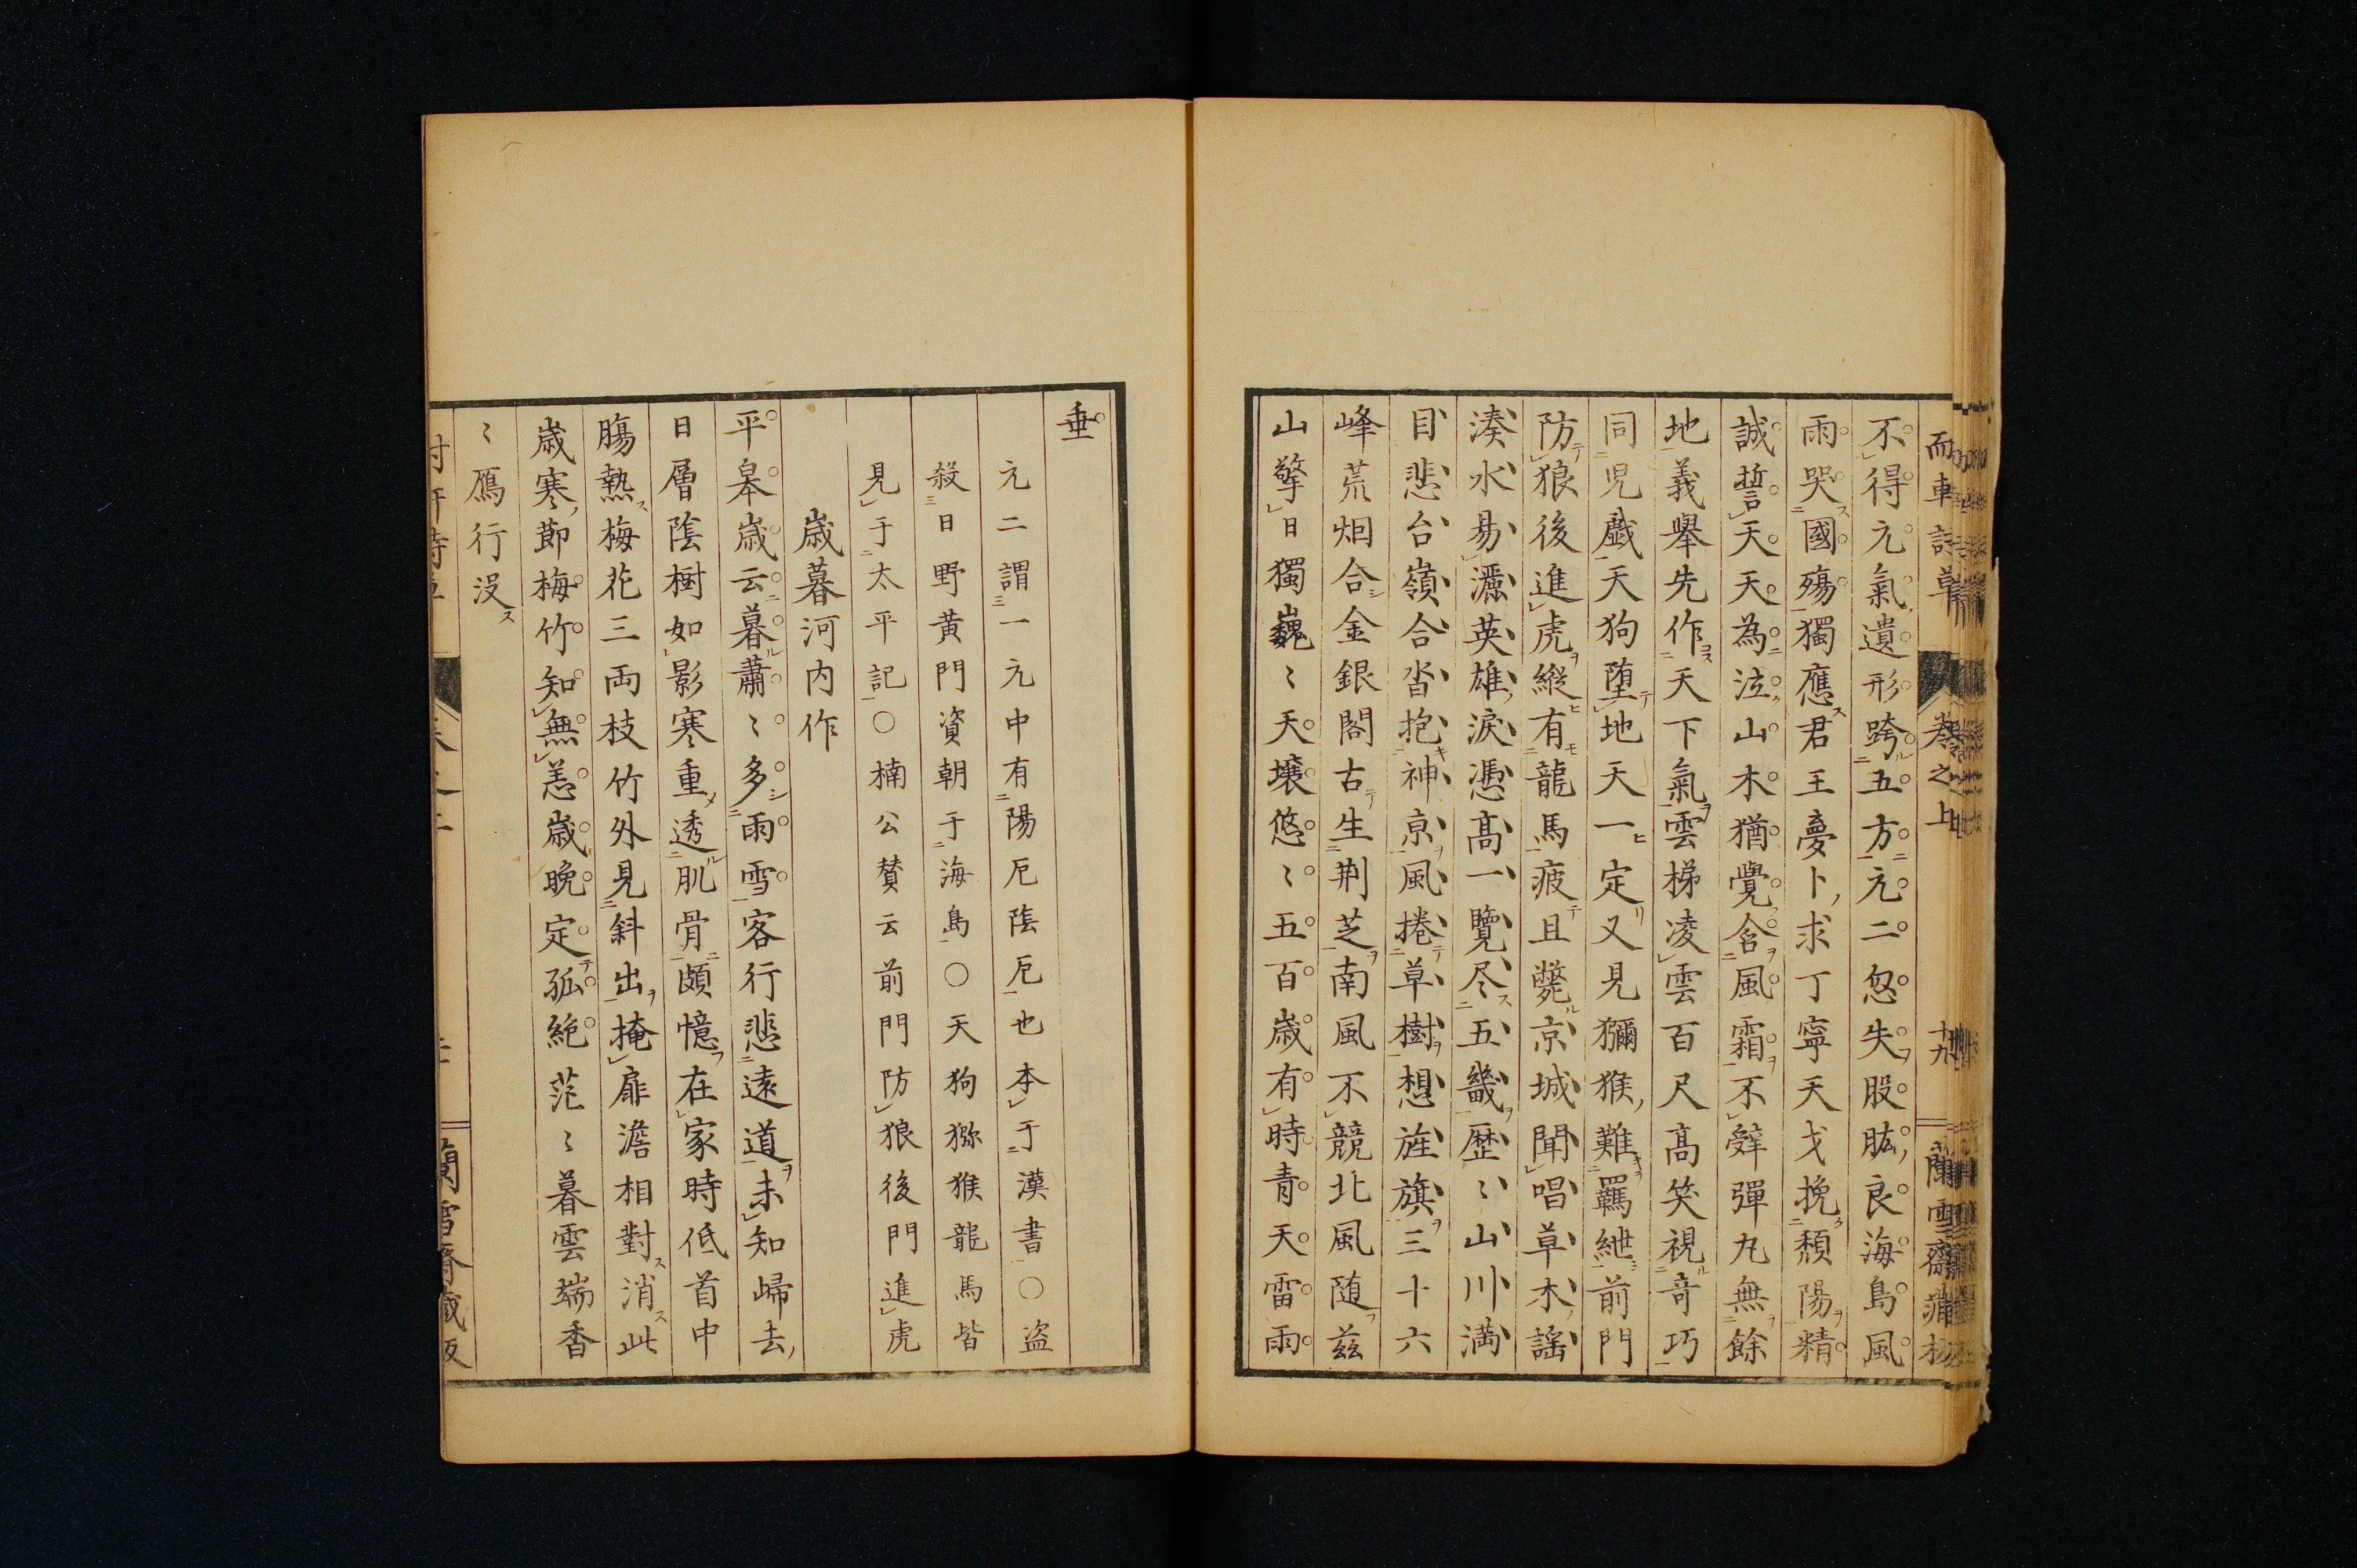 不得元氣遺形跨五方元二忽失股肱良海島風
雨哭國殤獨應君王夢卜求丁寧天戈挽頽陽精
誠誓天天為泣山木猶覺含風霜不辤彈丸無餘
地義舉先作天下氣雲梯凌雲百尺高笑視竒巧
同児戯天狗堕地天一定又見獼猴難羈紲前門
防狼後進虎縱有龍馬疲且斃京城聞唱草木謡
湊水易灑英雄淚憑高一覽尽五畿歴〻山川満
目悲台嶺合沓抱神京風捲草樹想旌旗三十六
峰荒烟合金銀閣古生荆芝南風不競北風随兹
山擎日獨巍〻天壌悠〻五百歳有時青天雷雨
而車詩草 卷之上 十九
垂
元二謂一元中有陽厄陰厄也本于漢書○盗
殺日野黄門資朝于海島○天狗猕猴龍馬皆
見于太平記○楠公賛云前門防狼後門進虎
歳暮河内作
平皐歳云暮蕭〻多雨雪客行悲遠道未知歸去
日層陰樹如影寒重透肌骨頗憶在家時低首中
膓熱梅花三両枝竹外見斜出掩扉澹相對消此
歳寒節梅竹知無恙歳晩定孤絶茫〻暮雲端香
〻鴈行没